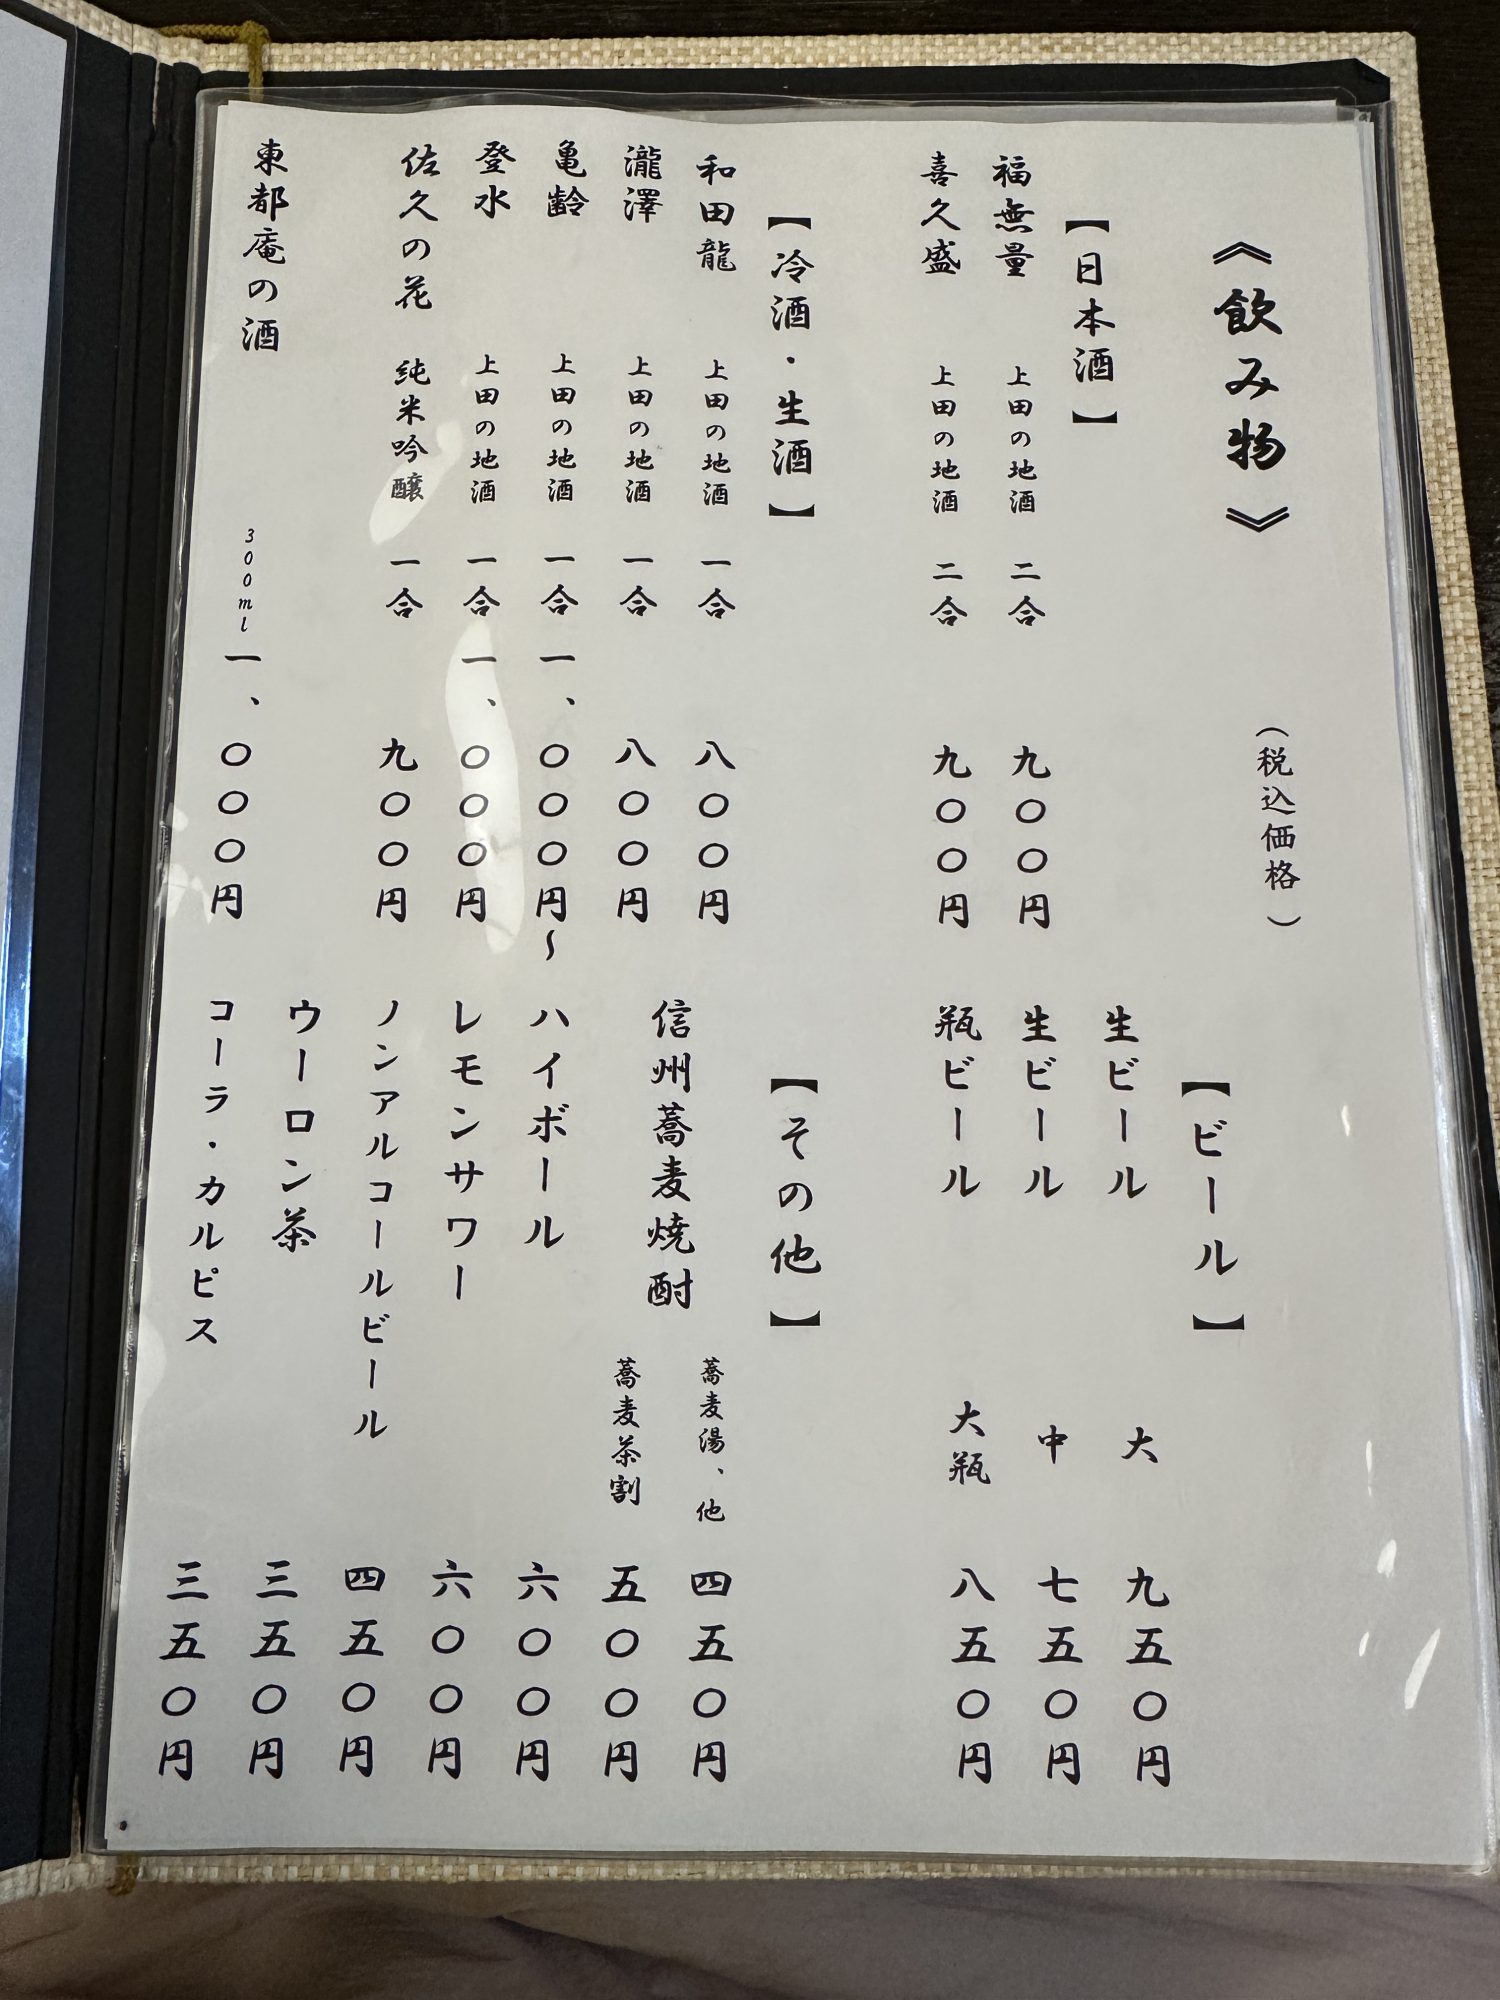 《飲み物》 (税込価格)
【日本酒】
福無量 上田の地酒 二合 九〇〇円
喜久盛 上田の地酒 二合 九〇〇円
【冷酒・生酒】
和田龍 上田の地酒 一合 八〇〇円
瀧澤 上田の地酒 一合 八〇〇円
亀齢 上田の地酒 一合 一、〇〇〇円〜
登水 上田の地酒 一合 一、〇〇〇円
佐久の花 純米吟醸 一合 九〇〇円
東都庵の酒 300ml 一、〇〇〇円
【ビール】
生ビール 大 九五〇円
生ビール 中 七五〇円
瓶ビール 大瓶 八五〇円
【その他】
信州蕎麦焼酎 蕎麦湯、他 四五〇円
蕎麦茶割 五〇〇円
ハイボール 六〇〇円
レモンサワー 六〇〇円
ノンアルコールビール 四五〇円
ウーロン茶 三五〇円
コーラ・カルピス 三五〇円